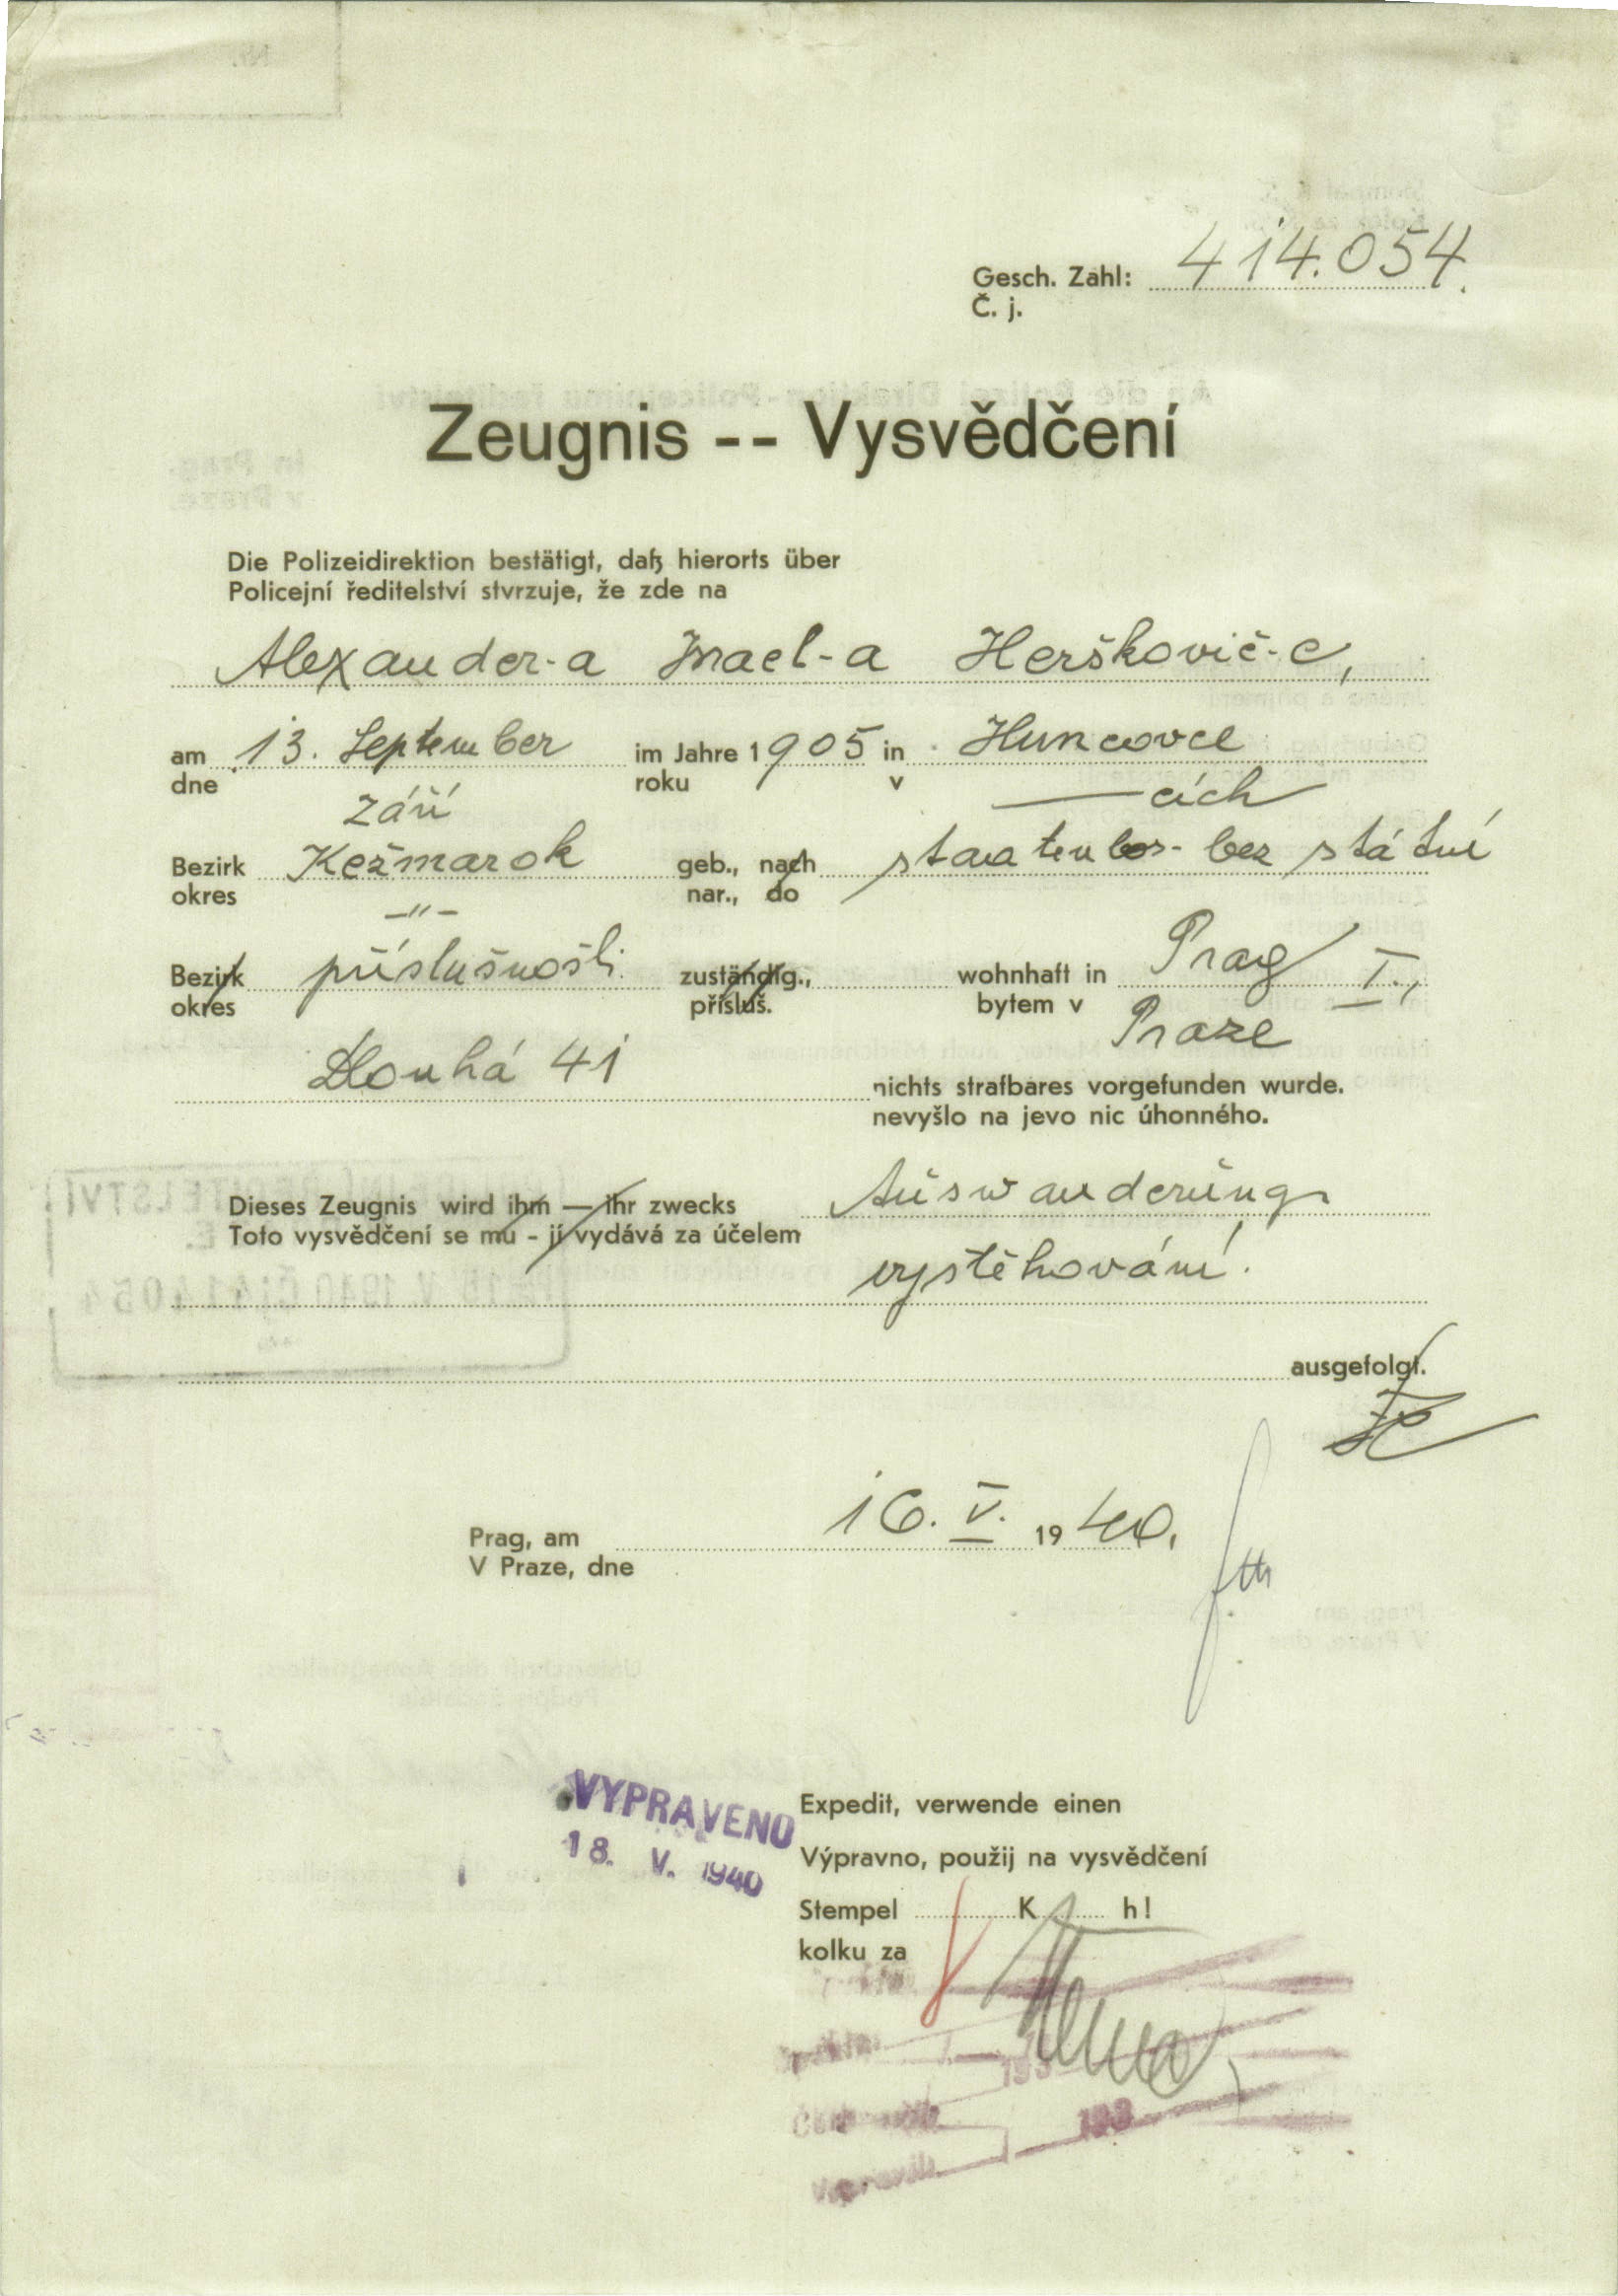 Gesch. Zahl: 414.054.
Č. j.
Zeugnis -- Vysvědčení
Die Polizeidirektion bestätigt, daß hierorts über
Policejní ředitelství stvrzuje, že zde na
Alexander-a Israel-a Herškovič-e,
am 13. September im Jahre 1905 in Huncovce
dne září roku v —cích
Bezirk Kežmarok geb., nach staatenlos - bez státní
okres —"— nar., do
Bezirk příslušnosti zuständig., wohnhaft in Prag I.,
okres přísluš. bytem v Praze
Dlouhá 41
nichts strafbares vorgefunden wurde.
nevyšlo na jevo nic úhonného.
Dieses Zeugnis wird ihm — ihr zwecks Auswanderung
Toto vysvědčení se mu - jí vydává za účelem
vystěhování.
ausgefolgt.
Prag, am 16. V. 1940.
V Praze, dne
VYPRAVENO
18. V. 1940
Expedit, verwende einen
Výpravno, použij na vysvědčení
Stempel K h!
kolku za
193
193